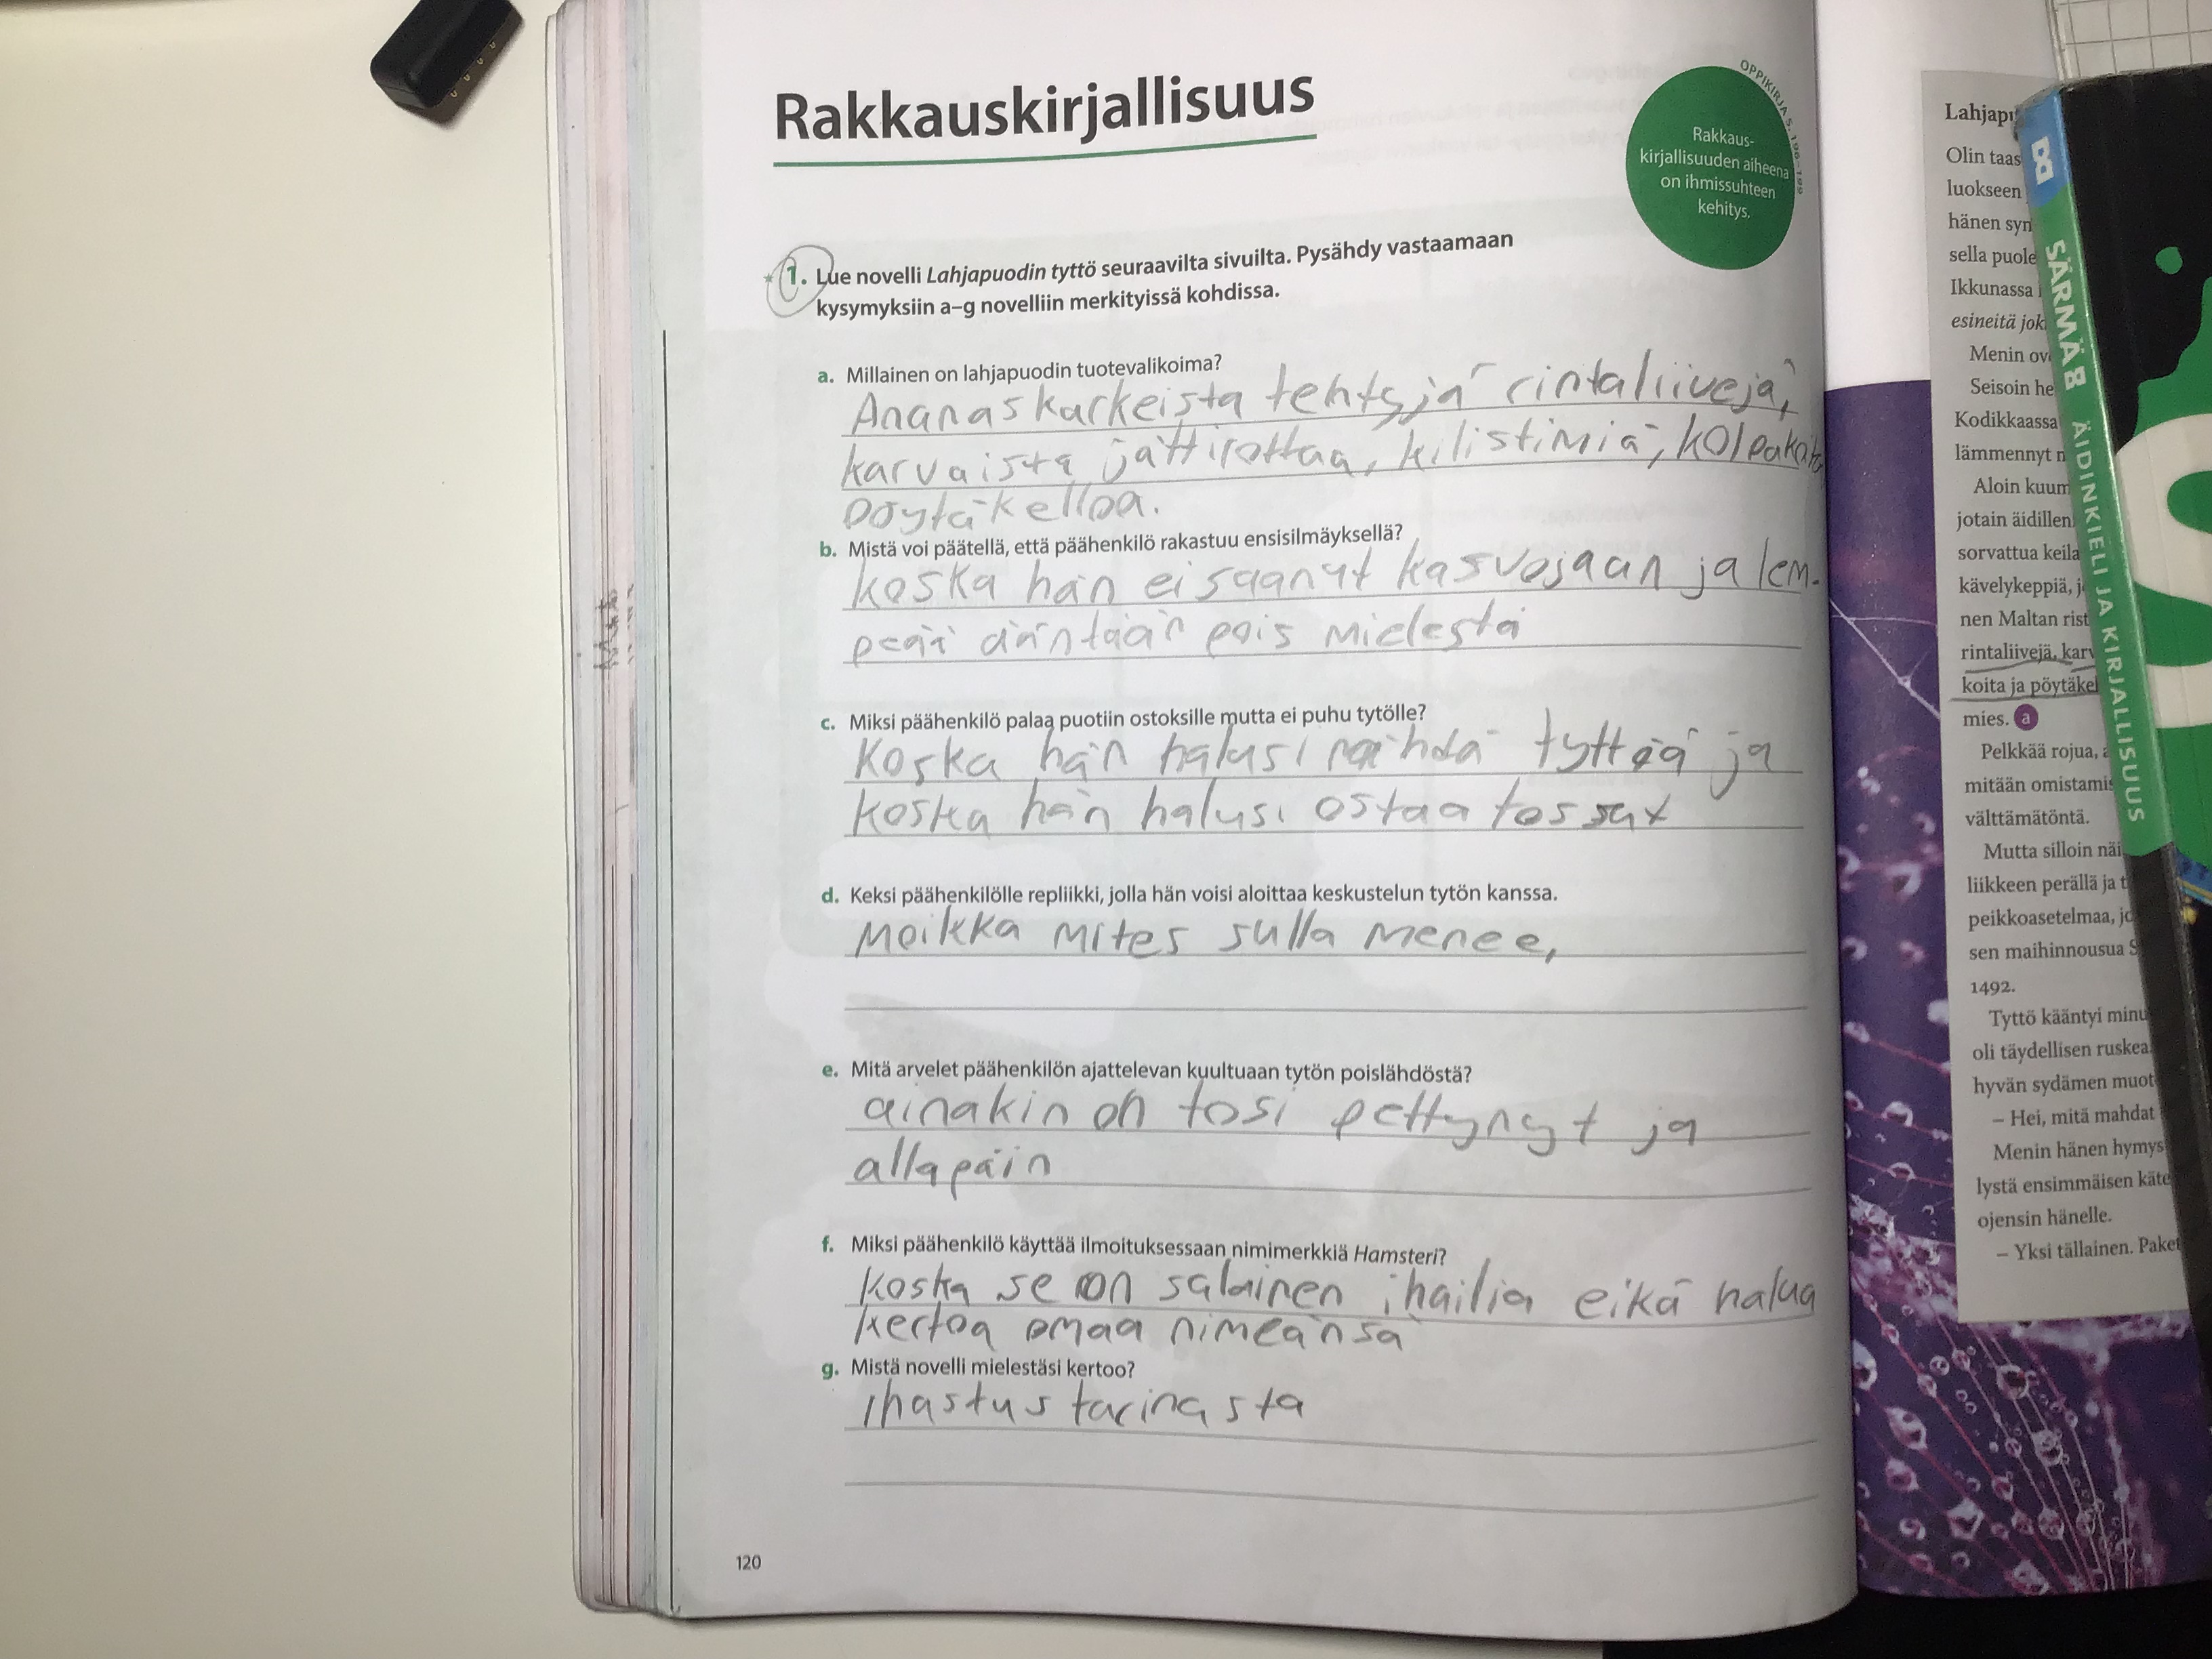 Rakkauskirjallisuus
OPPIKIRJA S. 196–199
Rakkaus-
kirjallisuuden aiheena
on ihmissuhteen
kehitys.
1. Lue novelli Lahjapuodin tyttö seuraavilta sivuilta. Pysähdy vastaamaan
kysymyksiin a–g novelliin merkityissä kohdissa.
a. Millainen on lahjapuodin tuotevalikoima?
Ananaskarkeista tehtyjä rintaliivejä,
karvaista jättirottaa, kilistimiä, kolpakoita
pöytäkelloa.
b. Mistä voi päätellä, että päähenkilö rakastuu ensisilmäyksellä?
koska hän ei saanut kasvojaan ja lem-
peää ääntään pois mielestä
c. Miksi päähenkilö palaa puotiin ostoksille mutta ei puhu tytölle?
Koska hän halusi nähdä tyttöä ja
koska hän halusi ostaa tossut
d. Keksi päähenkilölle repliikki, jolla hän voisi aloittaa keskustelun tytön kanssa.
Moikka mites sulla menee,
e. Mitä arvelet päähenkilön ajattelevan kuultuaan tytön poislähdöstä?
ainakin on tosi pettynyt ja
allapäin
f. Miksi päähenkilö käyttää ilmoituksessaan nimimerkkiä Hamsteri?
Koska se on salainen ihailia eikä halua
kertoa omaa nimeänsä
g. Mistä novelli mielestäsi kertoo?
Ihastus tarinasta
120
Lahjapu
Olin taas
luokseen
hänen syn
sella puole
Ikkunassa
esineitä jok
Menin ov
Seisoin he
Kodikkaassa
lämmennyt n
Aloin kuum
jotain äidillen
sorvattua keila
kävelykeppiä, j
nen Maltan rist
rintaliivejä, karv
koita ja pöytäkel
mies. a
Pelkkää rojua, a
mitään omistamis
välttämätöntä.
Mutta silloin näi
liikkeen perällä ja t
peikkoasetelmaa, jo
sen maihinnousua S
1492.
Tyttö kääntyi minu
oli täydellisen ruskea
hyvän sydämen muot
– Hei, mitä mahdat
Menin hänen hymys
lystä ensimmäisen käte
ojensin hänelle.
– Yksi tällainen. Paket
SÄRMÄ 8 ÄIDINKIELI JA KIRJALLISUUS